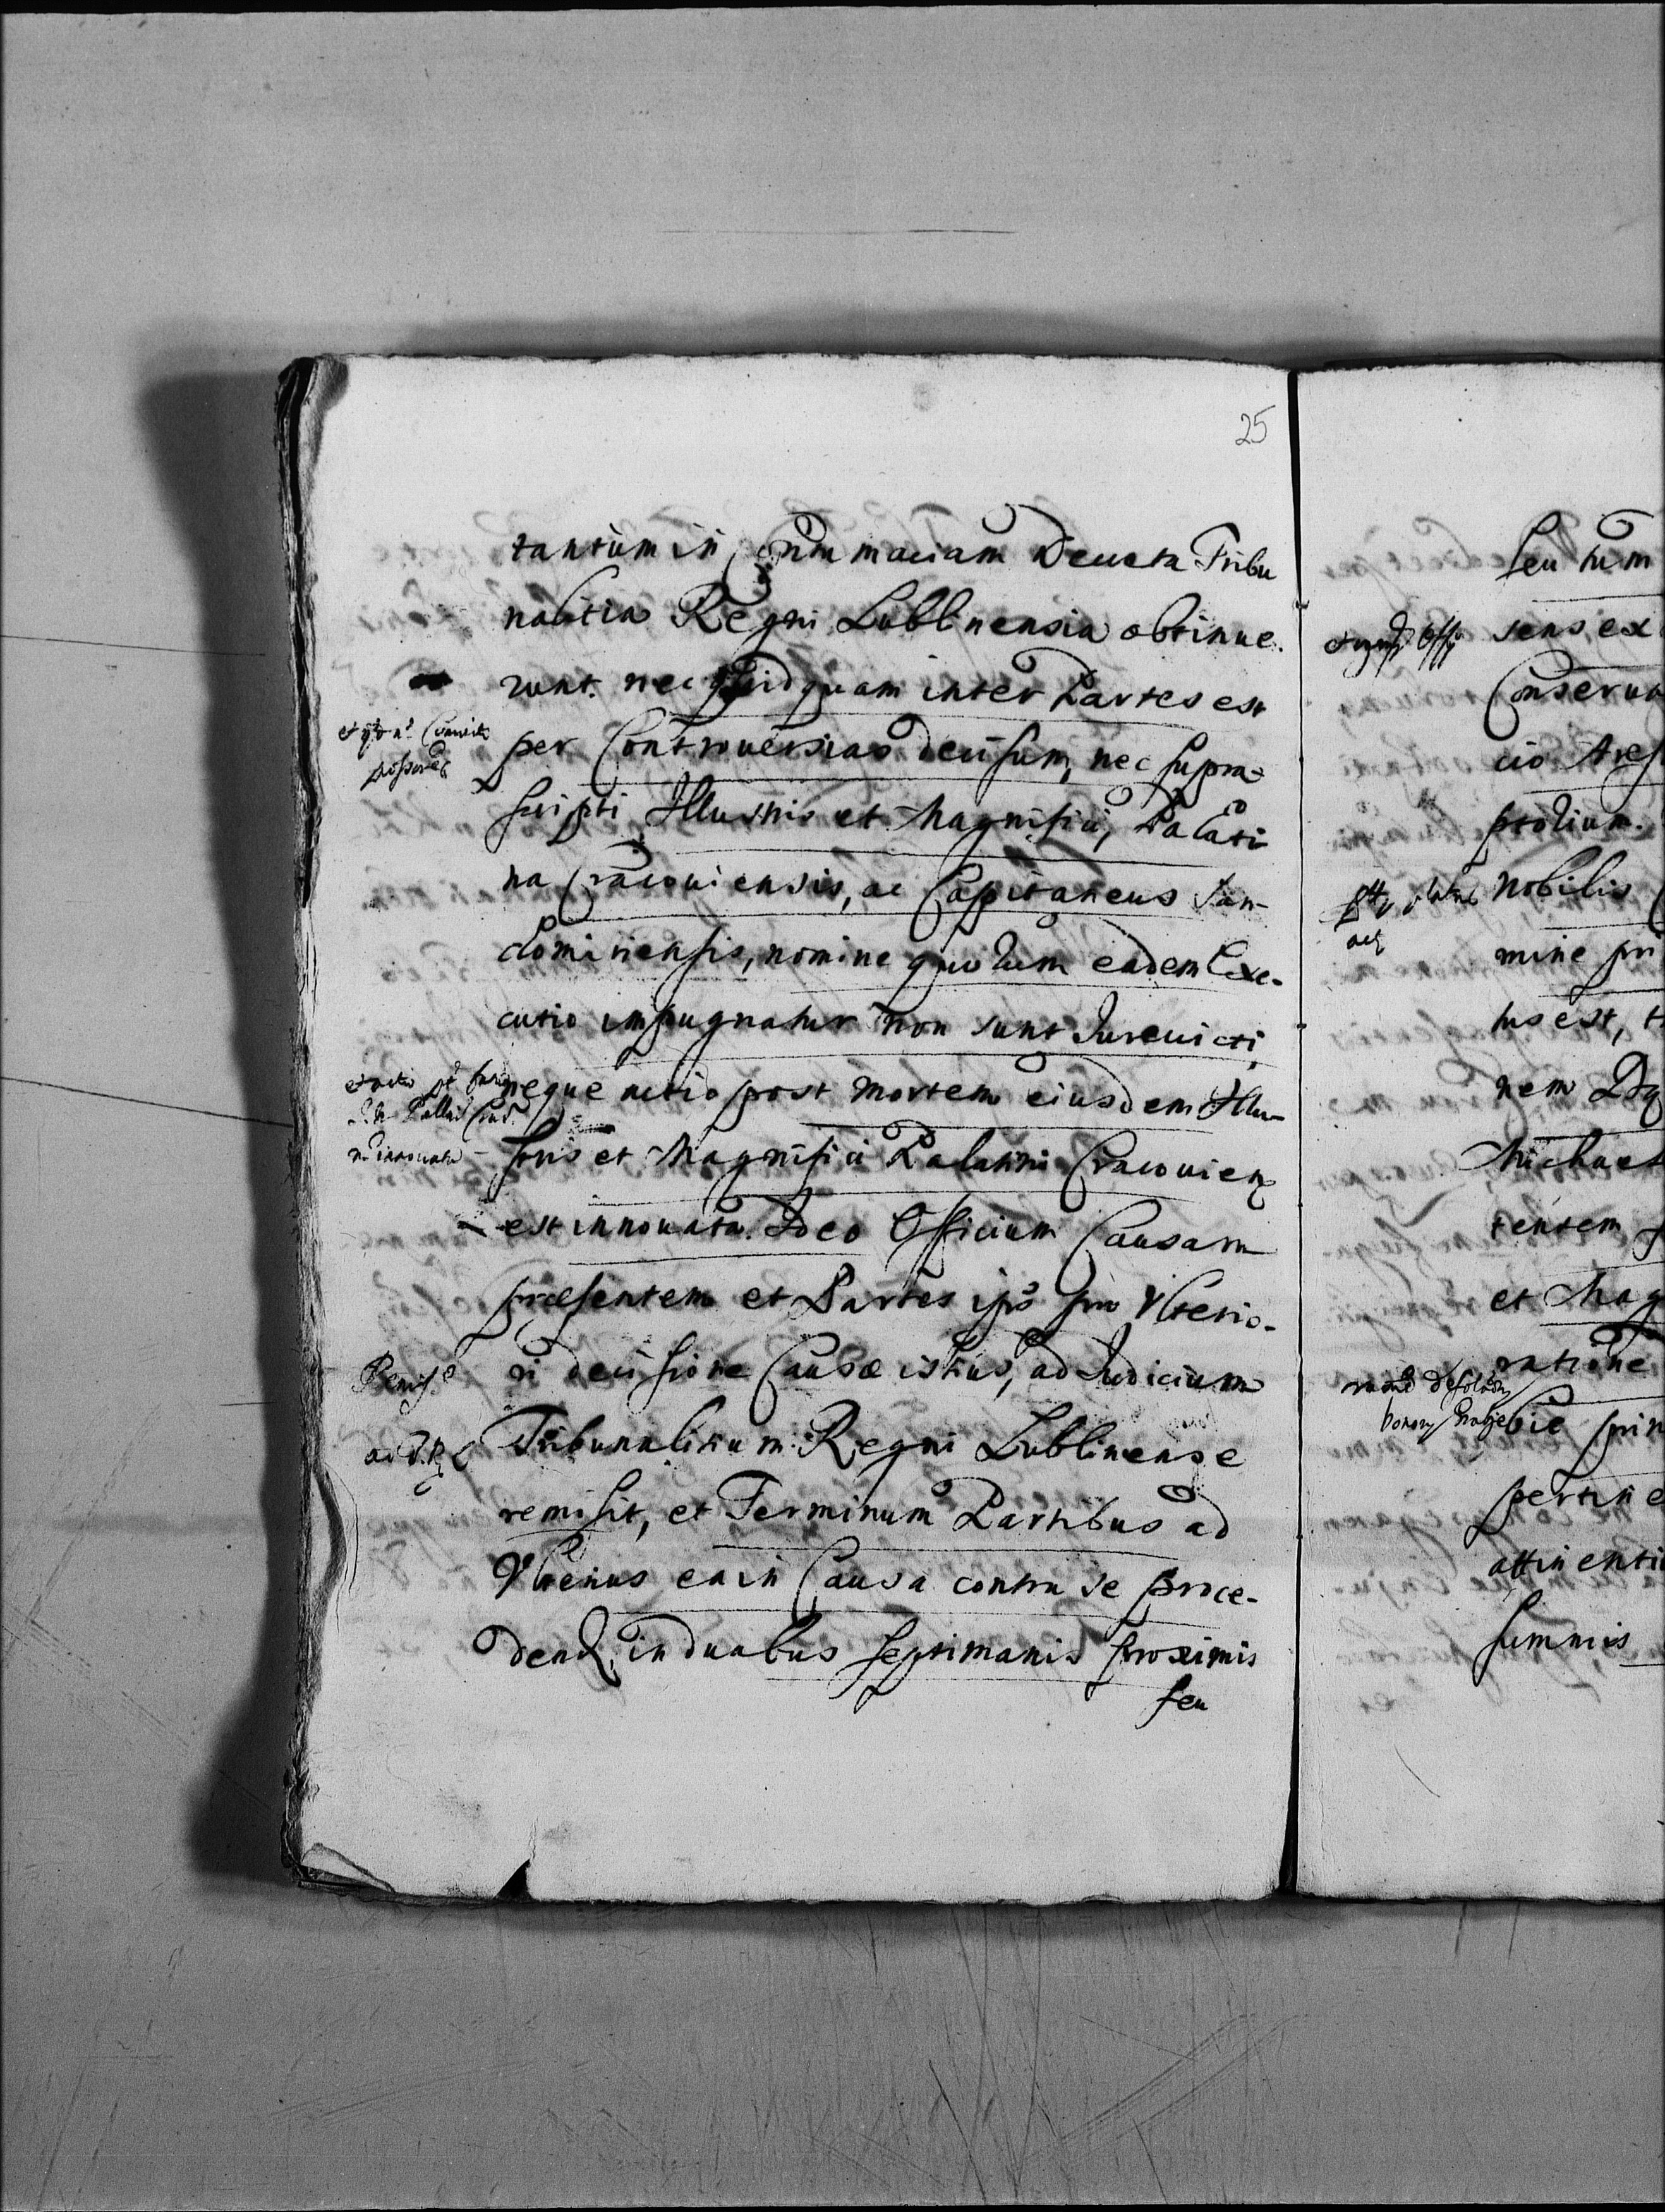 25
tantum in Contumaciam Decreta Tribu
nalitia Regni Lublinensia obtinue.
runt. nec quidquam inter Partes est
per Controuersias decisum, nec supra-
scripti Illustris et Magnifici, Palati
na Cracouiensis, ac Capitaneus San-
domiriensis, nomine quorum eadem Exe-
cutio impugnatur non sunt Jureuicti,
neque actio post mortem eiusdem Illu-
stris et Magnifici Palatini Cracouien
est innouata. Ideo Officium Causam
præsentem et Partes ips pro Vlterio-
ri decisione Causæ istius, ad Judicium
Tribunalitium Regni Lublinense
remisit, et Terminum Partibus ad
Vlterius ea in Causa contra se proce-
dend, in duabus septimanis proximis
seu
et actio
innouata
Remis
ad
seu tum
sens ex
Conserua
cio
nobilis
mine pri
tus est,
nem
Michael
tensem
et Mag
ratione
prin
pertine
attinenti
summis